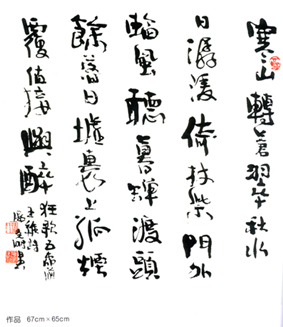 寒山轉蒼翠秋水
日潺湲倚杖柴門外
臨風聽暮蟬渡頭
餘落日墟裏上孤煙
覆值接輿醉
狂歌五柳前
王維詩
作品 67cm×65cm